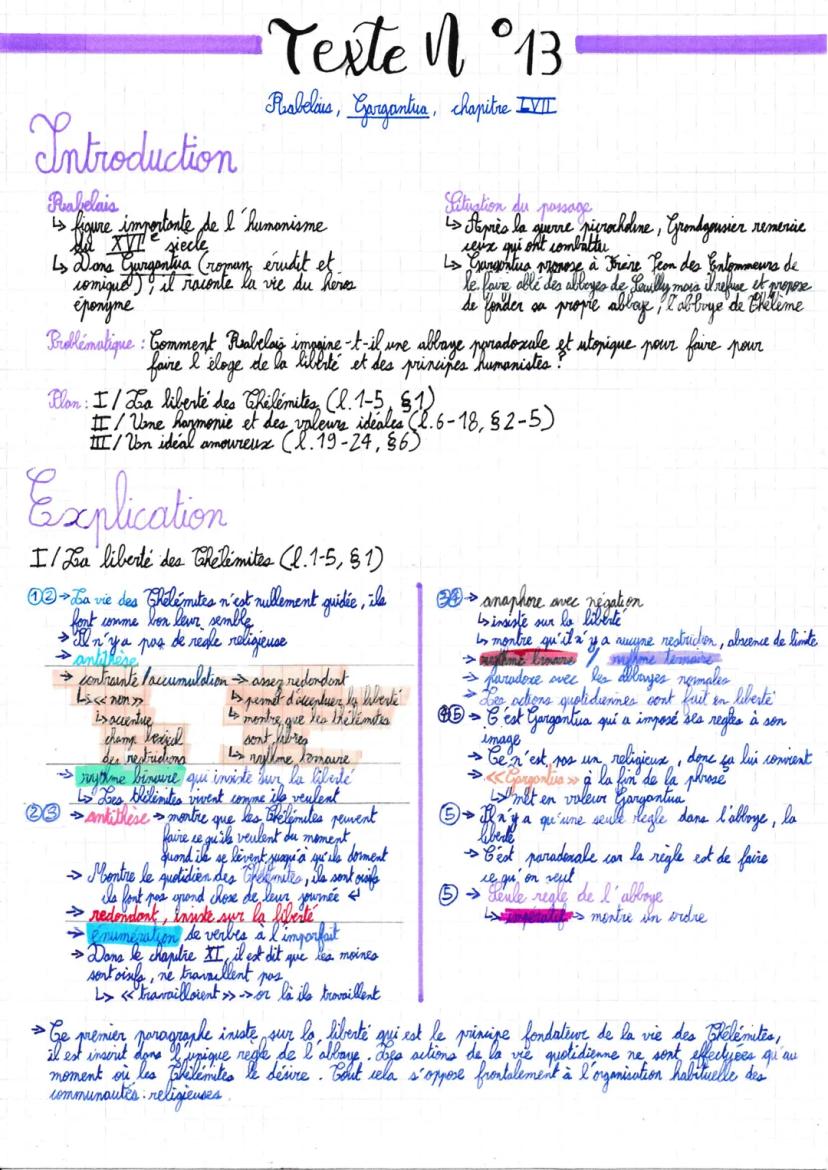 Texte N°13
Rabelais, Gargantua, chapitre LVII
Introduction
Rabelais
↳ figure importante de l'humanisme
du XVIe siecle
↳ Dans Gargantua (roman érudit et
comique), il raconte la vie du héros
éponyme
Situation du passage
↳ Après la guerre picrocholine, Grandgousier remercie
ceux qui ont combattu
↳ Gargantua propose à Frère Jean des Entommeurs de
le faire abbé des abbayes de Seuilly mais il refuse et propose
de fonder sa propre abbaye, l'abbaye de Thélème
Problématique : Comment Rabelais imagine-t-il une abbaye paradoxale et utopique pour faire pour
faire l'éloge de la liberté et des principes humanistes ?
Plan : I/ La liberté des Thélémites (l.1-5, §1)
II/ Une harmonie et des valeurs idéales (l.6-18, §2-5)
III/ Un idéal amoureux (l.19-24, §6)
Explication
I/ La liberté des Thélémites (l.1-5, §1)
①② → La vie des Thélémites n'est nullement guidée, ils
font comme bon leur semble
→ Il n'y a pas de regle religieuse
→ antithèse
→ contrainte/accumulation → assez redondant
↳ << non >>
↳ accentue
champ lexical
des restrictions
↳ permet d'accentuer la liberté
↳ montre que les thélémites
sont libres
↳ rythme ternaire
→ rythme binaire qui insiste sur la liberté
↳ Les thélémites vivent comme ils veulent
②③ → antithèse → montre que les Thélémites peuvent
faire ce qu'ils veulent du moment
quand ils se lèvent jusqu'à qu'ils dorment
→ Montre le quotidien des Thélémites, ils sont oisifs
ils font pas grand chose de leur journée ↵
→ redondant, insiste sur la liberté
→ énumération de verbes a l'imparfait
→ Dans le chapitre XL, il est dit que les moines
sont oisifs, ne travaillent pas
↳ << travailloient >> → or là ils travaillent
③④ → anaphore avec négation
↳ insiste sur la liberté
↳ montre qu'il n'y a aucune restriction, absence de limite
→ rythme binaire / rythme ternaire
→ paradoxe avec les abbayes normales
→ Les actions quotidiennes sont fait en liberté
④⑤ → C'est Gargantua qui a imposé ses regles à son
image
→ Ce n'est pas un religieux, donc ça lui convient
→ <<Gargantua>> à la fin de la phrase
↳ met en valeur Gargantua
⑤ → Il n'y a qu'une seule regle dans l'abbaye, la
liberté
→ C'est paradoxale car la règle est de faire
ce qu'on veut
⑤ → Seule regle de l'abbaye
↳ impératif → montre un ordre
→ Ce premier paragraphe insiste sur la liberté qui est le principe fondateur de la vie des Thélémites,
il est inscrit dans l'unique regle de l'abbaye. Les actions de la vie quotidienne ne sont effectuées qu'au
moment où les Thélémites le désire. Tout cela s'oppose frontalement à l'organisation habituelle des
communautés religieuses.